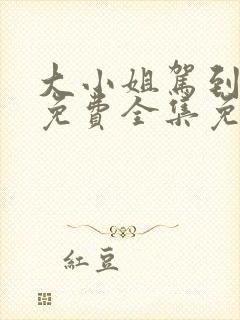 大小姐駕到
免費全集免
紅豆